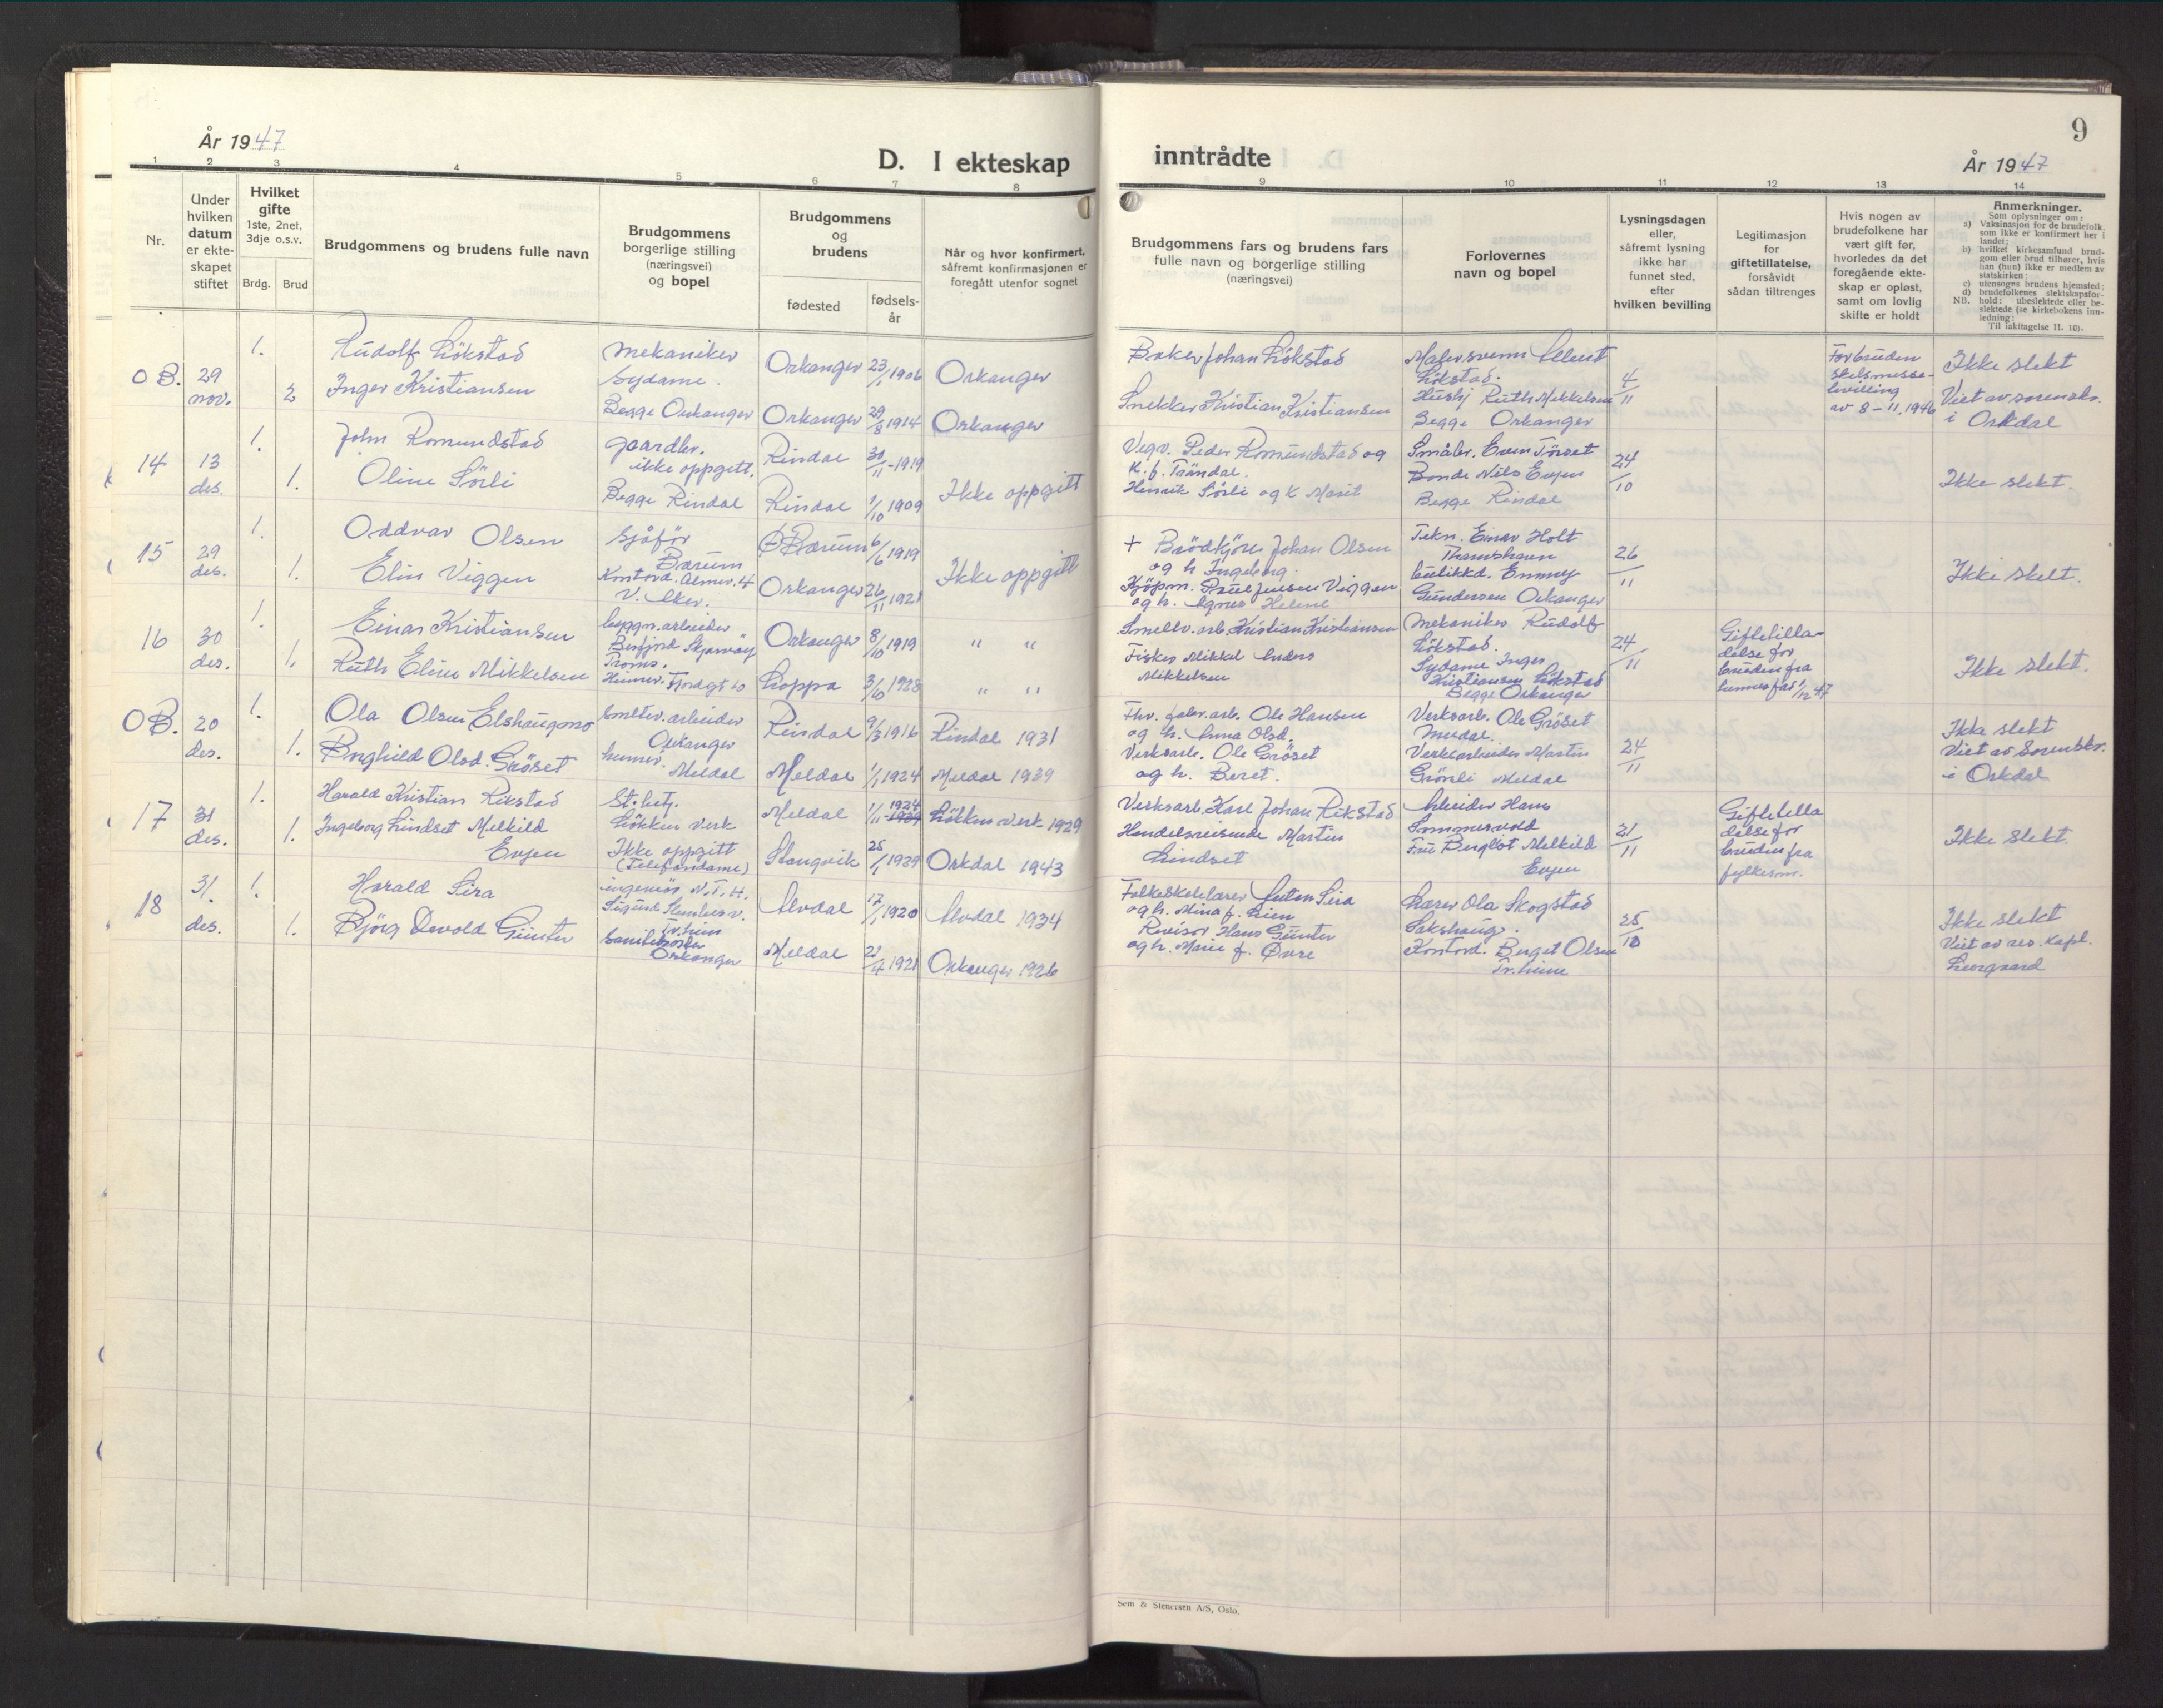 År 1947
D. I ekteskap
inntrådte
År 1947
9
1 2 3 4 5 6 7 8
9 10 11 12 13 14
Nr.
Under hvilken datum er ekte-skapet stiftet
Hvilket gifte
1ste, 2net, 3dje o.s.v.
Brdg. Brud
Brudgommens og brudens fulle navn
Brudgommens borgerlige stilling (næringsvei) og bopel
Brudgommens og brudens
fødested
fødsels-år
Når og hvor konfirmert, såfremt konfirmasjonen er foregått utenfor sognet
Brudgommens fars og brudens fars fulle navn og borgerlige stilling (næringsvei)
Forlovernes navn og bopel
Lysningsdagen eller, såfremt lysning ikke har funnet sted, efter hvilken bevilling
Legitimasjon for giftetillatelse, forsåvidt sådan tiltrenges
Hvis nogen av brudefolkene har vært gift før, hvorledes da det foregående ekte-skap er opløst, samt om lovlig skifte er holdt
Anmerkninger.
Som oplysninger om:
a) Vaksinasjon for de brudefolk. som ikke er konfirmert her i landet;
b) hvilket kirkesamfund brud-gom eller brud tilhører, hvis han (hun) ikke er medlem av statskirken;
c) utensogns brudens hjemsted;
d) brudefolkenes slektskapsfor-
NB. hold: ubeslektede eller be-slektede (se kirkebokens inn-ledning:
Til iakttagelse II. 10).
OB. 29 nov. 1. Rudolf Lökstad mekaniker Orkanger 23/1 1906 Orkanger
2 Inger Kristiansen Sydame. Begge Orkanger Orkanger 29/8 1914 Orkanger
Baker Johan Lökstad
Snekker Kristian Kristiansen
Malersvenn
Lökstad.
Hushj Ruth Mikkelsen
Begge Orkanger
4/11
For bruden
bevilling
av 8-11.1946
Ikke slekt
Viet av sorenskr.
i Orkdal
14 13 des. 1. John Romundstad gaardbr. Rindal 30/11-1919
1. Oline Sörli ikke oppgitt. Begge Rindal Rindal 1/10 1909
Ikke oppgitt
Vegv. Peder Romundstad og
K. f. Tröndal.
Henrik Sörli og K Marit
Småbr. Even Törset
Bonde Nils Evjen
Begge Rindal
24/10
Ikke slekt.
15 29 des. 1. Oddvar Olsen Sjåför Bærum Bærum 6/6 1919
1. Elin Viggen Kontord. V. Aker. Orkanger 26/11 1921
Ikke oppgitt
+ Brödkjörer Johan Olsen
og h Ingeborg.
Kjöpm. Paul Jensen Viggen
og h. Agnes Helene
Tekn. Einar Holt
Thamshavn
Butikkd. Emmy
Gundersen Orkanger
26/11
Ikke slekt.
16 30 des. 1. Einar Kristiansen byggn.arbeider Skjærvöy Troms. Orkanger 8/10 1919 " "
1. Ruth Eline Mikkelsen Heimev. Loppa 3/10 1928 " "
Smeltv. arb. Kristian Kristiansen
Fisker Mikkel Anders
Mikkelsen
Mekaniker Rudolf
Lökstad.
Sydame Inger
Kristiansen Lökstad
Begge Orkanger
24/11
Giftetilla-
delse for
bruden fra
1/12 47
Ikke slekt.
OB. 20 des. 1. Ola Olsen Elshaugmo Smeltev. arbeider Orkanger Rindal 9/3 1916 Rindal 1931
1. Borghild Olsd. Gröset heimev. Meldal Meldal 1/1 1924 Meldal 1939
Fhv. fabr. arb. Ole Hansen
og h. Anna Olsd.
Verksarb. Ole Gröset
og h. Beret.
Verksarb. Ole Gröset
Meldal.
Verksarbeider Martin
Grönli Meldal
24/11
Ikke slekt
Viet av Sorenskr.
i Orkdal
17 31 des. 1. Harald Kristian Rikstad St.betj. Lökken Verk Meldal 1/11 1924 Lökken Verk 1929
1. Ingeborg Lindset Melkild Evjen Ikke oppgitt (Telefondame) Stangvik 25/1 1929 Orkdal 1943
Verksarb. Karl Johan Rikstad
Handelsreisende Martin
Lindset
Arbeider Hans
Sommervold
Fru Bergljot Melkild
Evjen
21/11
Giftetilla
delse for
bruden fra
fylkesm.
Ikke slekt.
18 31. des. 1. Harald Lira ingeniör N.T.H. Tr.heim Alvdal 17/1 1920 Alvdal 1934
1. Björg Devold Günter Orkanger Meldal 21/4 1921 Orkanger 1926
Folkeskolelærer Anton Lira
og h. Mina f. Lien
Revisor Hans Günter
og h. Marie f. Øvre
Lærer Ola Skogstad
Sakshaug.
Kontord. Berget Olsen
Tr.heim
25/10
Ikke slekt
Viet av res. kapl.
Sem & Stenersen A/S, Oslo.